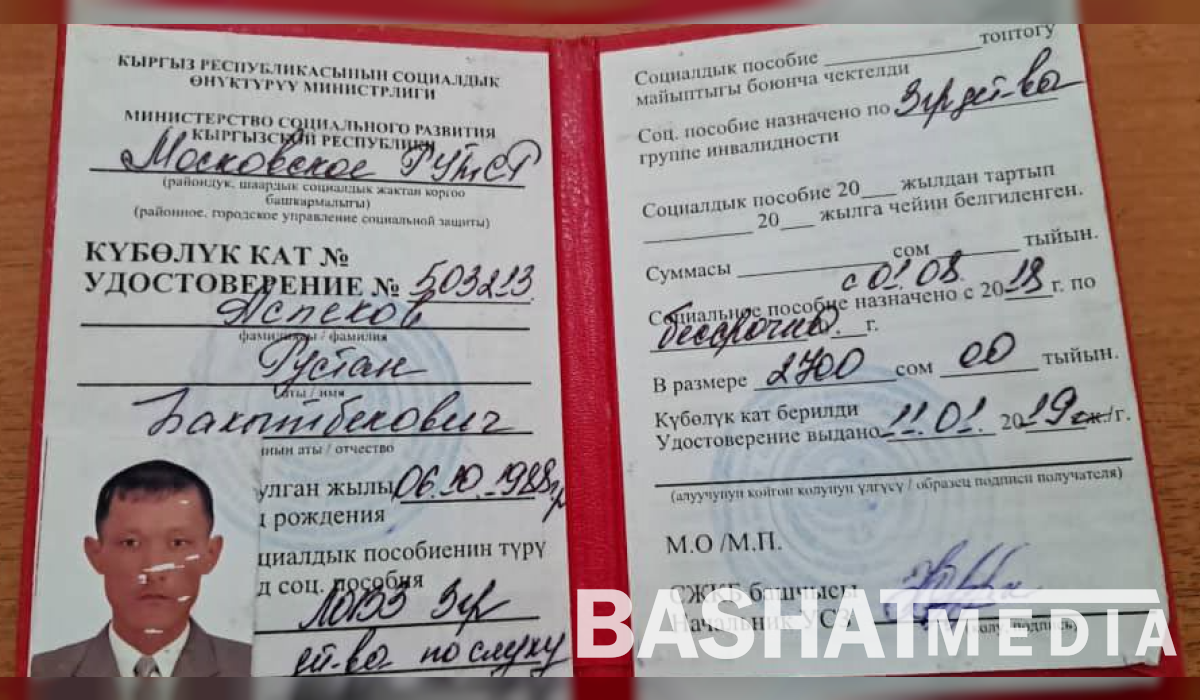 КЫРГЫЗ РЕСПУБЛИКАСЫНЫН СОЦИАЛДЫК
ӨНҮКТҮРҮҮ МИНИСТРЛИГИ
МИНИСТЕРСТВО СОЦИАЛЬНОГО РАЗВИТИЯ
КЫРГЫЗСКОЙ РЕСПУБЛИКИ
Московское РУТСР
(райондук, шаардык социалдык жактан коргоо
башкармалыгы)
(районное, городское управление социальной защиты)
КҮБӨЛҮК КАТ №
УДОСТОВЕРЕНИЕ № 503213
Аспеков
фамилиясы / фамилия
Рустан
аты / имя
Бакытбекович
нын аты / отчество
улган жылы 06.10.1988г
рождения
циалдык пособиенин түрү
д соц. пособия
ЛОВЗ 3гр
дет-ва по слуху
Социалдык пособие ______ топтогу
майыптыгы боюнча чектелди
Соц. пособие назначено по 3гр дет-ва
группе инвалидности
Социалдык пособие 20___ жылдан тартып
______ 20___ жылга чейин белгиленген.
Суммасы ______ сом ______ тыйын.
с 01.08.
Социальное пособие назначено с 2018 г. по
бессрочно г.
В размере 2700 сом 00 тыйын.
Күбөлүк кат берилди
Удостоверение выдано 11.01. 2019 ж./г.
(алуучунун койгон колунун үлгүсү / образец подписи получателя)
М.О /М.П.
СЖКБ башчысы
Начальник УСЗ
(колу, подпись)
BASHAT MEDIA